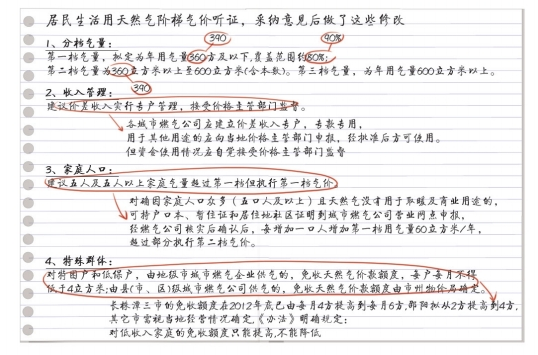 居民生活用天然气阶梯气价听证，采纳意见后做了这些修改
390 90%
1、分档气量：
第一档气量，拟定为年用气量360方及以下，覆盖范围约80%；
第二档气量为360立方米以上至600立方米（含本数）。第三档气量，为年用气量600立方米以上。
390
2、收入管理：
建议价差收入实行专户管理，接受价格主管部门监督。
各城市燃气公司应建立价差收入专户，专款专用，
用于其他用途的应向当地价格主管部门申报，经批准后方可使用。
但资金使用情况应自觉接受价格主管部门监督
3、家庭人口：
建议五人及五人以上家庭气量超过第一档但执行第一档气价。
对确因家庭人口众多（五口人及以上）且天然气没有用于取暖及商业用途的，
可持户口本、暂住证和居住地社区证明到城市燃气公司营业网点申报，
经燃气公司核实后确认后，每增加一口人增加第一档用气量60立方米/年，
超过部分执行第二档气价。
4、特殊群体：
对特困户和低保户，由地级市城市燃气企业供气的，免收天然气价款额度，每户每月不得
低于4立方米；由县（市、区）级城市燃气公司供气的，免收天然气价款额度由市州物价局确定。
长株潭三市的免收额度在2012年底已由每月4方提高到每月6方，邵阳拟从2方提高到4方，
其它市需视当地经营情况确定，《办法》明确规定：
对低收入家庭的免收额度只能提高，不能降低